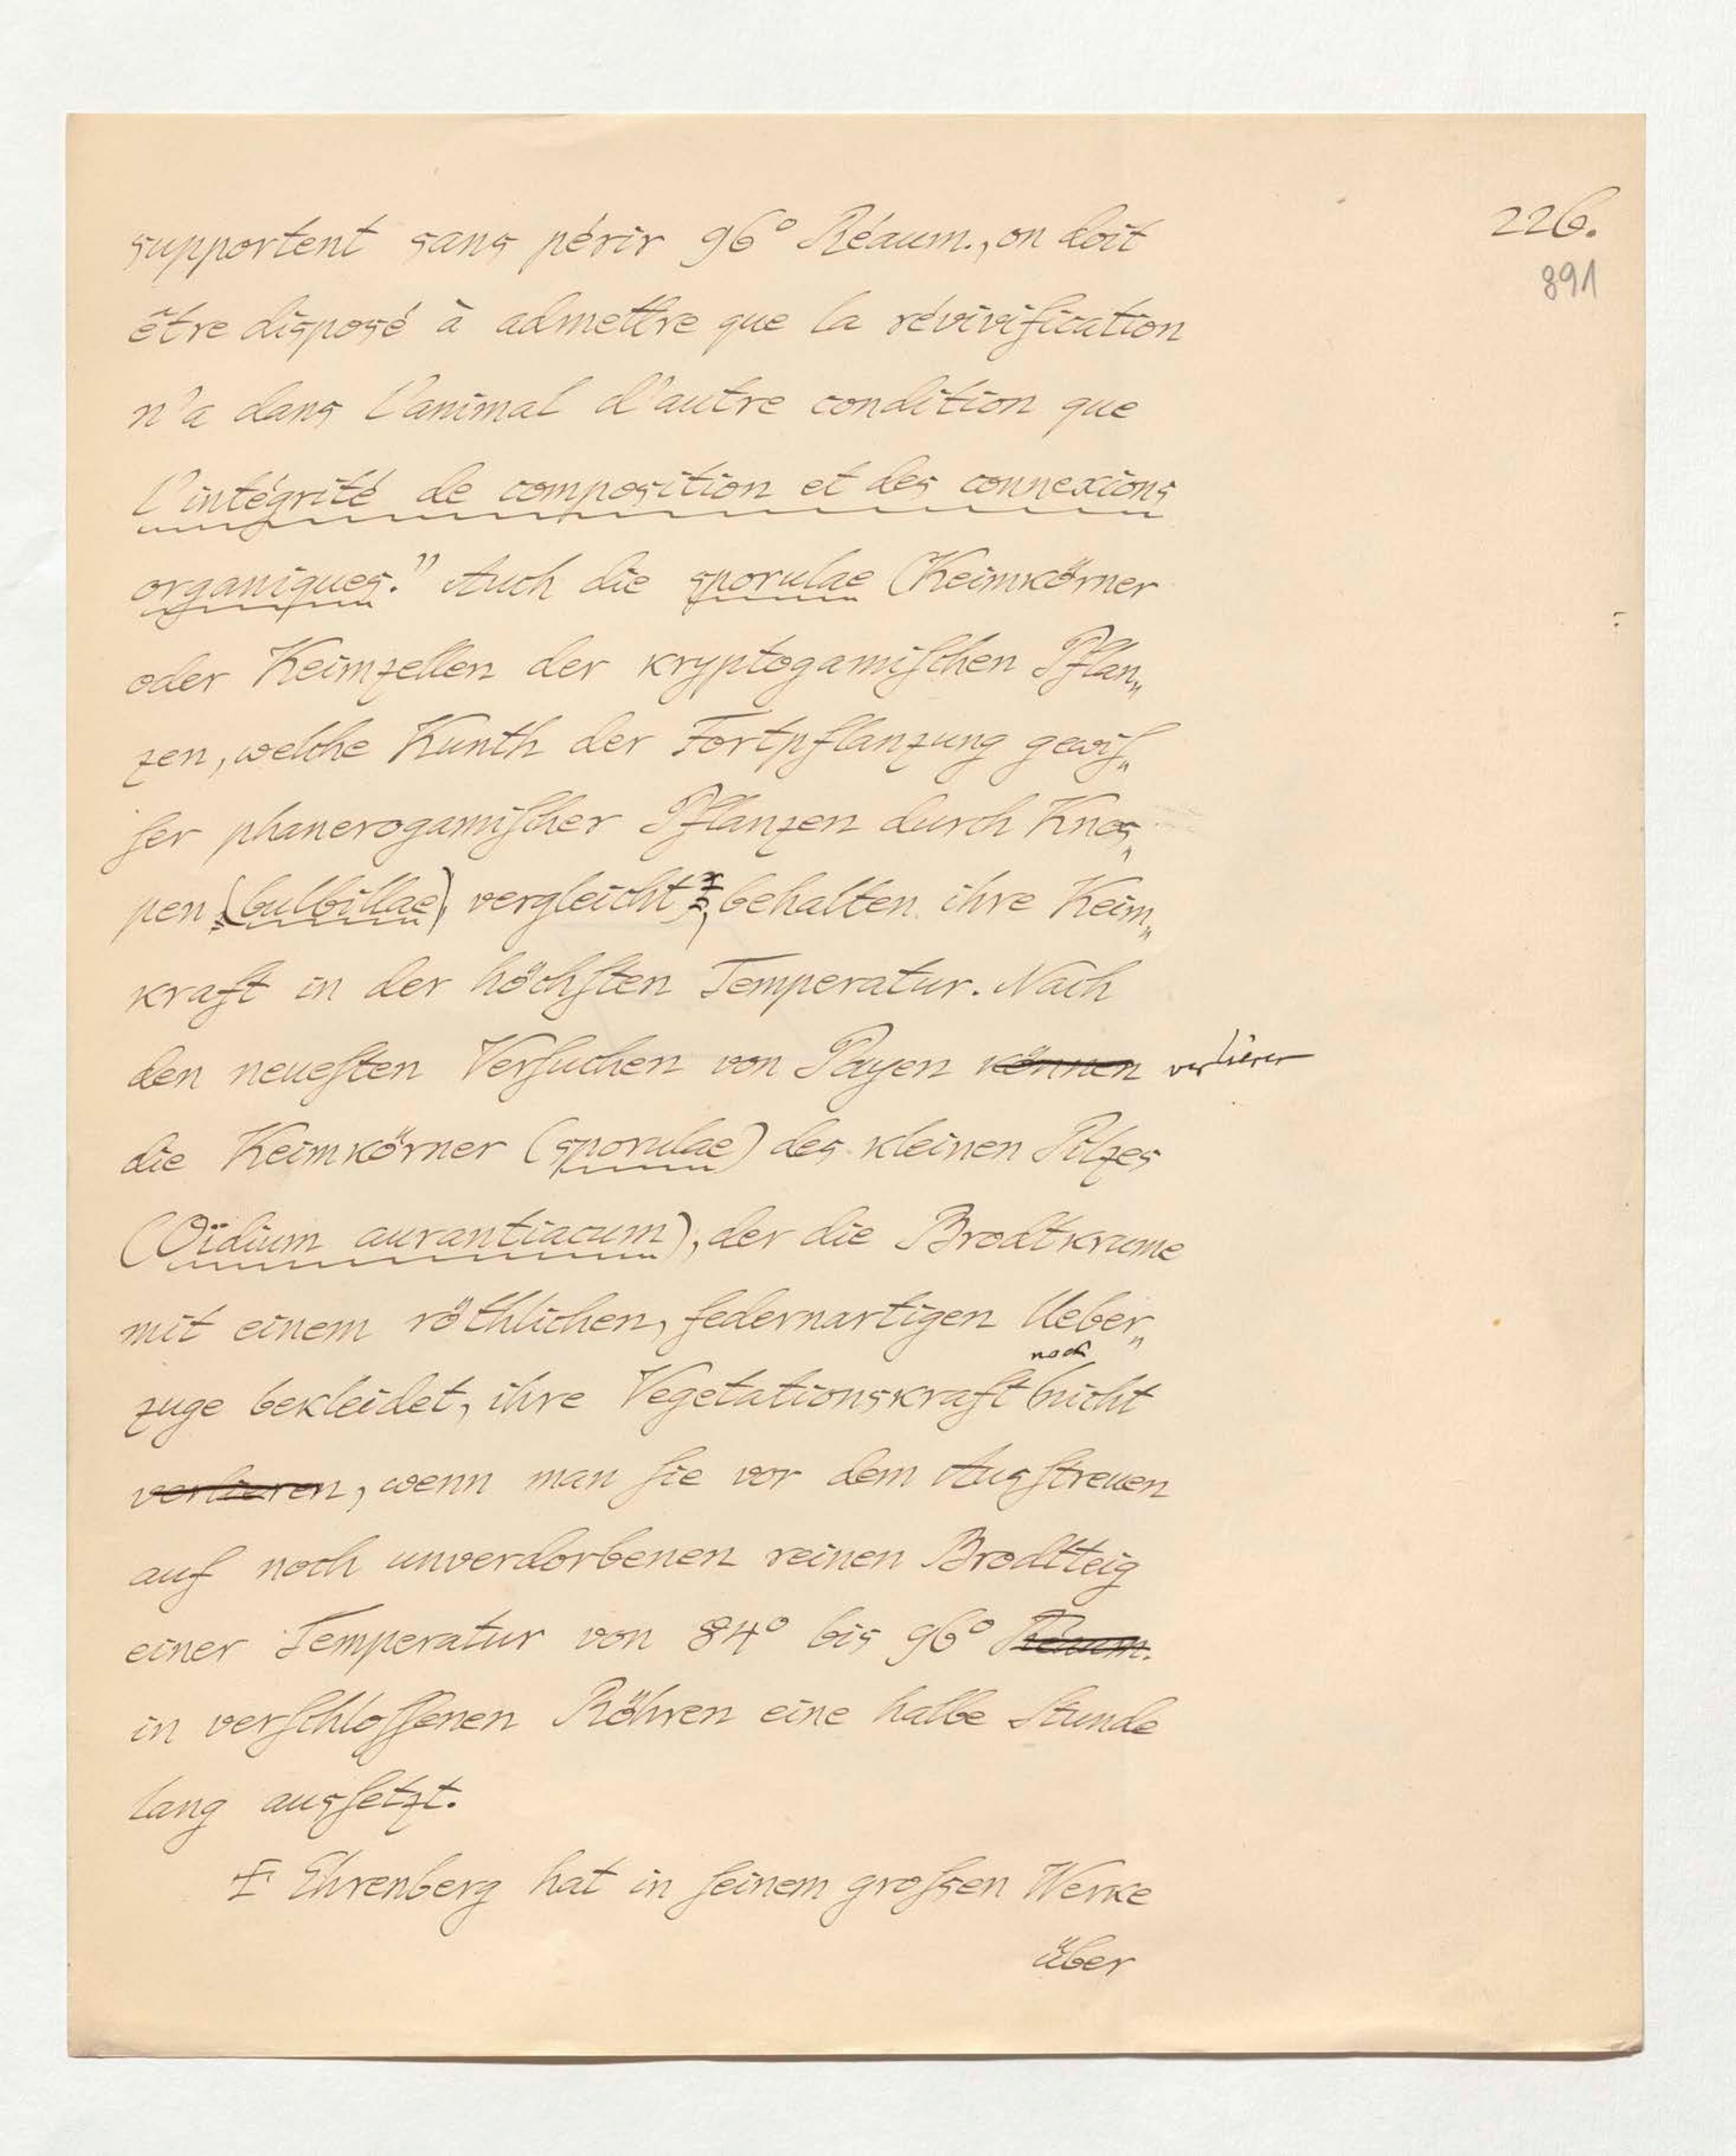 226.
891
supportent sans périr 96° Réaum., on doit
être disposé à admettre que la révivification
n'a dans l'animal d'autre condition que
l'intégrité de composition et des connexions
organiques." Auch die sporulae (Keimkörner
oder Keimzellen der kryptogamiſchen Pflan„
zen, welche Kunth der Fortpflanzung gewiſ„
ſer phanerogamiſcher Pflanzen durch Knos„
pen (bulbillae) vergleicht), behalten ihre Keim„
kraft in der höchſten Temperatur. Nach
den neueſten Verſuchen von Payen können verlieren
die Keimkörner (sporulae) des kleinen Pilzes
(Oïdium aurantiacum), der die Brodtkrume
mit einem röthlichen, federnartigen Ueber„
noch
zuge bekleidet, ihre Vegetationskraft nicht
verlieren, wenn man ſie vor dem Ausſtreuen
auf noch unverdorbenen reinen Brodtteig
einer Temperatur von 84° bis 96° Réaum.
in verſchloſſenen Röhren eine halbe Stunde
lang ausſetzt.
Ehrenberg hat in ſeinem groſsen Werke
über